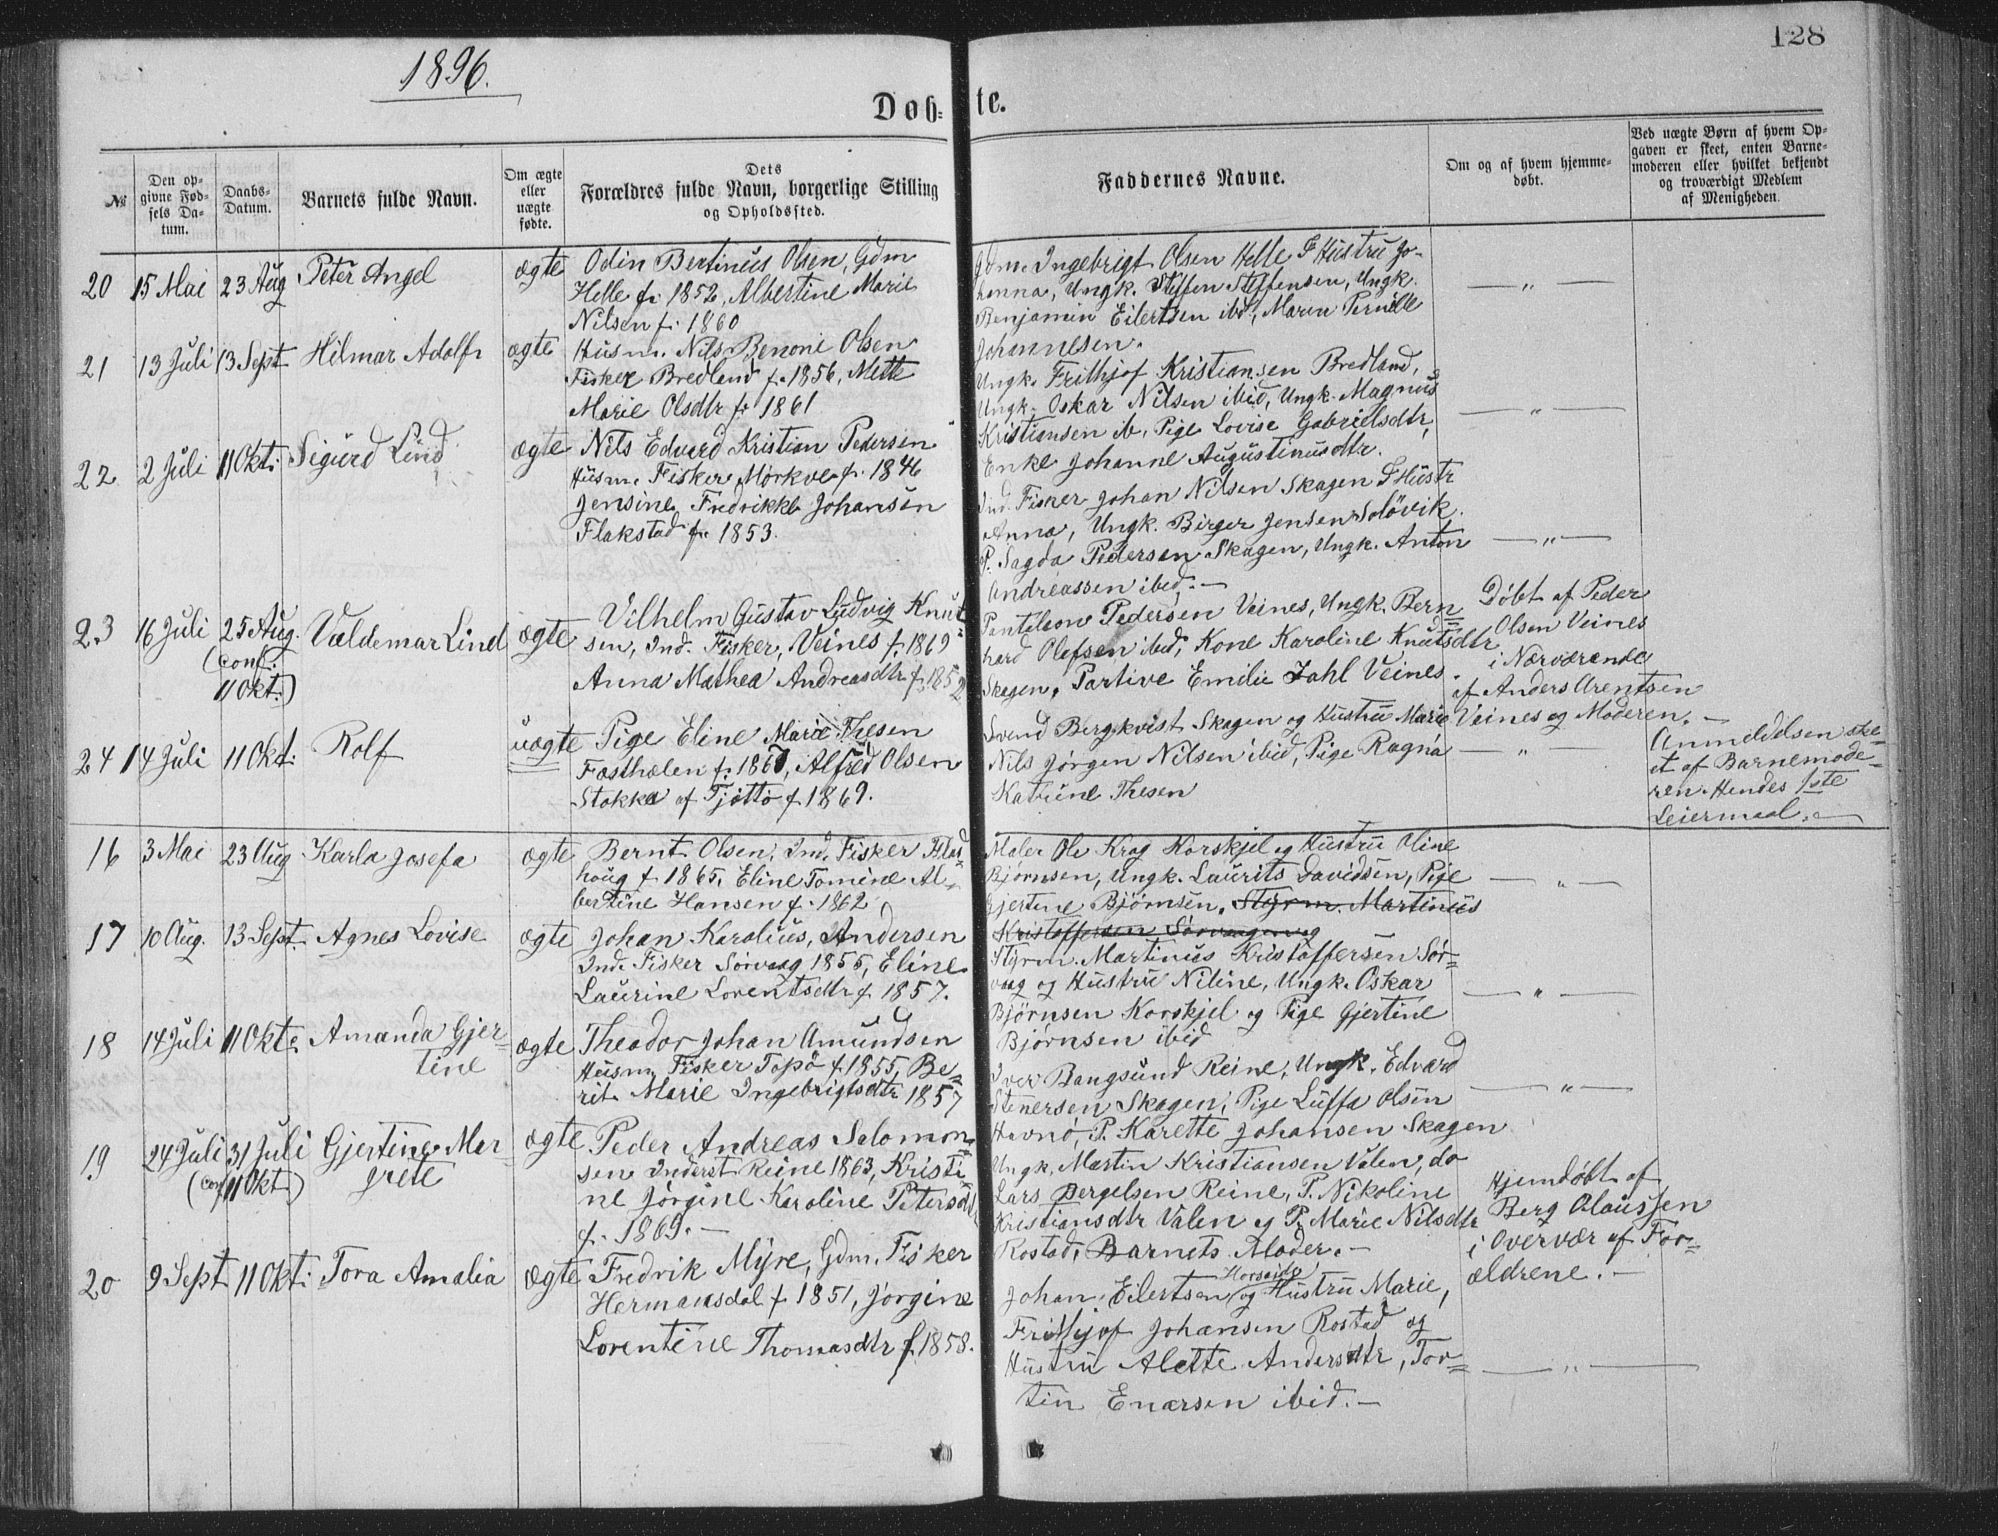 128
1896.
Døb-te.
№
Den op-
givne Fød-
sels Da-
tum.
Daabs-
Datum.
Barnets fulde Navn.
Om ægte
eller
uægte
fødte.
Dets
Forældres fulde Navn, borgerlige Stilling
og Opholdssted.
Faddernes Navne.
Om og af hvem hjemme-
døbt.
Ved uægte Børn af hvem Op-
gaven er skeet, enten Barne-
moderen eller hvilket bekjendt
og troværdigt Medlem
af Menigheden.
20 15 Mai 23 Aug Peter Angel ægte
Odin Bertinus Olsen, Gdm
Helle f. 1852, Albertine Marie
Nilsen f. 1860
Gdm. Ingebrigt Olsen Helle & Hustru Jo-
hanna, Ungk. Steffen Steffensen, Ungk.
Benjamin Eilertsen ibd, Maren Pernille
Johannesen.
— „ —
21 13 Juli 13 Sept Hilmar Adolf ægte
Husm. Nils Benoni Olsen
Fisker Bredland f. 1856, Mette
Marie Olsdtr f. 1861
Ungk. Frithjof Kristiansen Bredland,
Ungk. Oskar Nilsen ibid, Ungk. Magnus
Kristiansen ib, Pige Lovise Gabrielsdtr,
Enke Johanne Augustinusdtr.
— „ —
22 2 Juli 11 Okt. Sigurd Lind ægte
Nils Edvard Kristian Pedersen
Husm. Fisker Mørkve f. 1846
Jensine Fredrikke Johansen
Flakstad f. 1853.
Ind. Fisker Johan Nilsen Skagen & Hustr
Anna, Ungk. Birger Jensen Soløvik.
P. Sagda Pedersen Skagen, Ungk. Anton
Andreassen ibid. —
— „ —
23 16 Juli 25 Aug.
(Conf.
11 Okt.)
Valdemar Lind ægte
Vilhelm Gustav Ludvig Knut-
sen, Ind. Fisker, Veines f. 1869
Anna Mathea Andreasdtr f. 1852
Panteleon Pedersen Veines, Ungk. Bern-
hard Olefsen ibid, Kone Karoline Knutsdtr
Skagen, Partive Emilie Jahl Veines.
Døbt af Peder
Olsen Veines
i Nærværende
af Anders Arentsen
Veines og Moderen. —
24 14 Juli 11 Okt. Rolf uægte
Pige Eline Marie Thesen
Fasthælen f. 1867, Alfred Olsen
Stokka af Tjøtto f. 1869.
Svend Bergkvist Skagen og Hustru Marie
Nils Jørgen Nilsen ibid, Pige Ragna
Katrine Thesen
— „ —
Anmeldelsen ske-
et af Barnemode-
ren. Hendes 1ste
Leiermaal. —
16 3 Mai 23 Aug Karla Josefa ægte
Bernt Olsen, Ind. Fisker Flas-
haug f. 1865, Eline Tomine Al-
bertine Hansen f. 1862
Maler Ole Krog Korskjel og Hustru Oline
Bjørnsen, Ungk. Laurits Davidsen, Pige
Gjertine Bjørnsen. Styrm. Martinus
Kristoffersen Sørvaagen og
— „ —
17 10 Aug. 13 Sept. Agnes Lovise ægte
Johan Karolius Andersen
Ind. Fisker Sørvaag 1855, Eline
Laurine Lorentsdtr f. 1857.
Styrm. Martinus Kristoffersen Sør-
vaag og Hustru Niline, Ungk. Oskar
Bjørnsen Korskjel og Pige Gjertine
Bjørnsen ibid
— „ —
18 14 Juli 11 Okt. Amanda Gjer-
tine ægte
Theodor Johan Amundsen
Husm. Fisker Topø f. 1855, Be-
rit Marie Ingebrigtsdtr 1857
Iver Bangsund Reine, Ungk. Edvard
Stenersen Skagen, Pige Luffa Olsen
Havnø, P. Karette Johansen Skagen
— „ —
19 24 Juli 31 Juli
(Conf 11 Okt.)
Gjertine Mar-
grete ægte
Peder Andreas Salomon-
sen Inderst Reine 1863, Kristi-
ne Jørgine Karoline Petersdtr
f. 1869. —
Ungk. Martin Kristiansen Valen, do
Lars Bergelsen Reine, P. Nikoline
Kristiansdtr Valen og P. Marie Nilsdtr
Rostad, Barnets Moder. —
Hjemdøbt af
Berg Olaussen
i Overvær af For-
ældrene. —
20 9 Sept 11 Okt. Tora Amalia ægte
Fredrik Myre, Gdm. Fisker
Hermansdal f. 1851, Jørgine
Lorentine Thomasdtr f. 1858.
Johan Eilertsen Horseide og Hustru Marie,
Frithjof Johansen Rostad og
Hustru Alette Andersdtr, Tor-
tin Enarsen ibid. —
— „ —